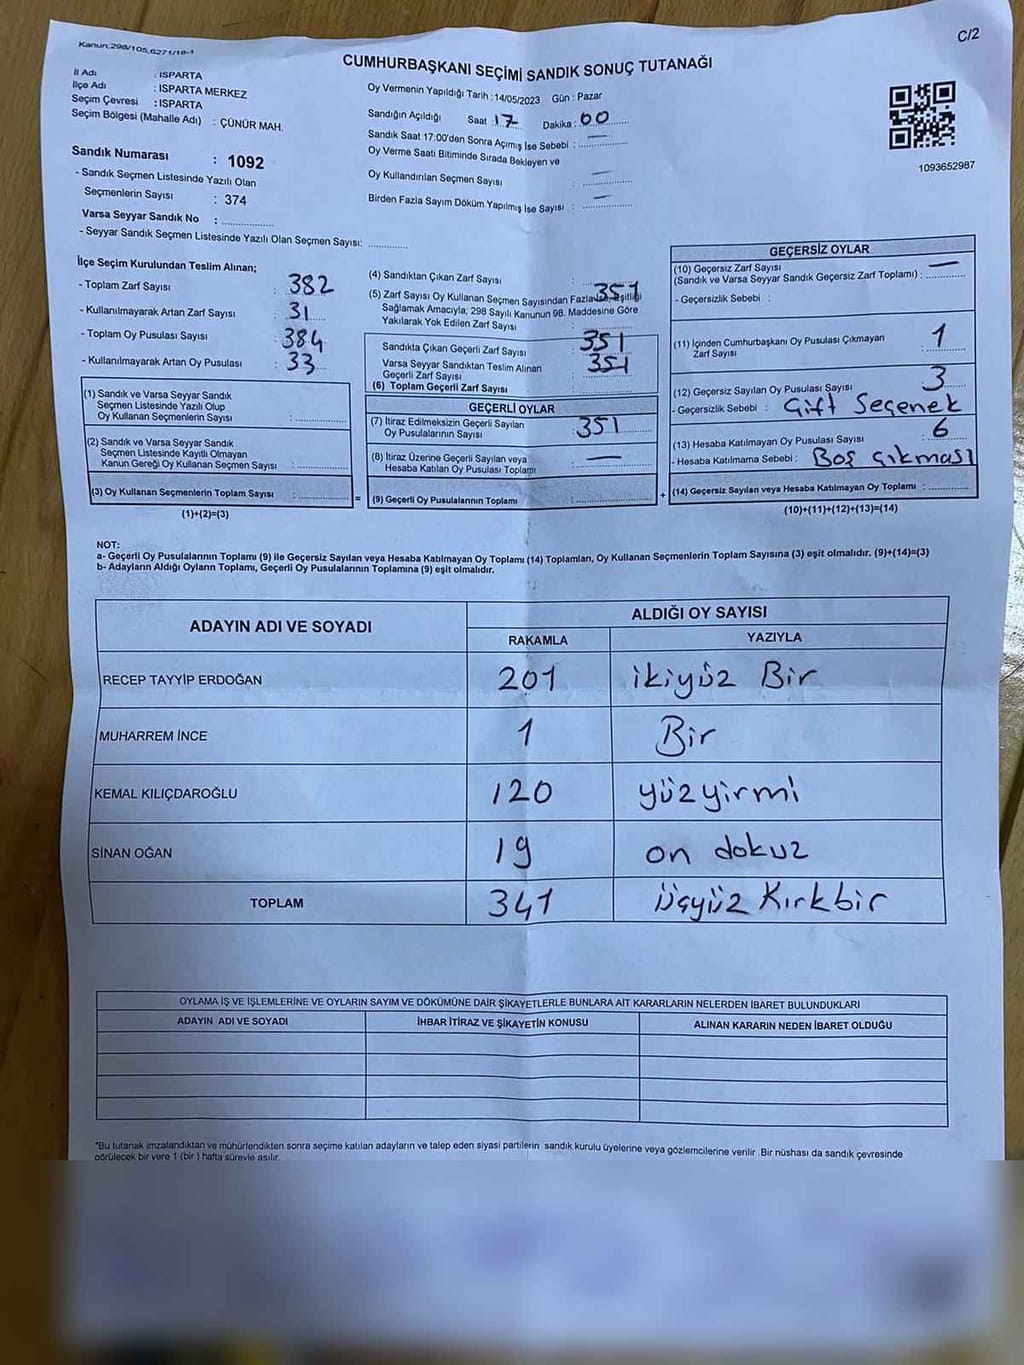 Kanun:298/105,6271/18-1
C/2
CUMHURBAŞKANI SEÇİMİ SANDIK SONUÇ TUTANAĞI
İl Adı : ISPARTA
İlçe Adı : ISPARTA MERKEZ
Seçim Çevresi : ISPARTA
Seçim Bölgesi (Mahalle Adı) : ÇÜNÜR MAH.
Sandık Numarası : 1092
- Sandık Seçmen Listesinde Yazılı Olan
Seçmenlerin Sayısı : 374
Varsa Seyyar Sandık No :
- Seyyar Sandık Seçmen Listesinde Yazılı Olan Seçmen Sayısı:
Oy Vermenin Yapıldığı Tarih :14/05/2023 Gün : Pazar
Sandığın Açıldığı Saat : 17 Dakika : 00
Sandık Saat 17:00'den Sonra Açımış İse Sebebi : —
Oy Verme Saati Bitiminde Sırada Bekleyen ve
Oy Kullandırılan Seçmen Sayısı : —
Birden Fazla Sayım Döküm Yapılmış İse Sayısı : —
1093652987
İlçe Seçim Kurulundan Teslim Alınan;
- Toplam Zarf Sayısı : 382
- Kullanılmayarak Artan Zarf Sayısı : 31
- Toplam Oy Pusulası Sayısı : 384
- Kullanılmayarak Artan Oy Pusulası : 33
(1) Sandık ve Varsa Seyyar Sandık
Seçmen Listesinde Yazılı Olup
Oy Kullanan Seçmenlerin Sayısı :
(2) Sandık ve Varsa Seyyar Sandık
Seçmen Listesinde Kayıtlı Olmayan
Kanun Gereği Oy Kullanan Seçmen Sayısı :
(3) Oy Kullanan Seçmenlerin Toplam Sayısı : =
(1)+(2)=(3)
(4) Sandıktan Çıkan Zarf Sayısı : 351
(5) Zarf Sayısı Oy Kullanan Seçmen Sayısından Fazla Eşitliği
Sağlamak Amacıyla; 298 Sayılı Kanunun 98. Maddesine Göre
Yakılarak Yok Edilen Zarf Sayısı :
Sandıkta Çıkan Geçerli Zarf Sayısı : 351
Varsa Seyyar Sandıktan Teslim Alınan
Geçerli Zarf Sayısı : 351
(6) Toplam Geçerli Zarf Sayısı
GEÇERLİ OYLAR
(7) İtiraz Edilmeksizin Geçerli Sayılan
Oy Pusulalarının Sayısı : 351
(8) İtiraz Üzerine Geçerli Sayılan veya
Hesaba Katılan Oy Pusulası Toplamı : —
(9) Geçerli Oy Pusulalarının Toplamı : +
GEÇERSİZ OYLAR
(10) Geçersiz Zarf Sayısı
(Sandık ve Varsa Seyyar Sandık Geçersiz Zarf Toplamı) : —
- Geçersizlik Sebebi :
(11) İçinden Cumhurbaşkanı Oy Pusulası Çıkmayan
Zarf Sayısı : 1
(12) Geçersiz Sayılan Oy Pusulası Sayısı : 3
- Geçersizlik Sebebi : Çift Seçenek
(13) Hesaba Katılmayan Oy Pusulası Sayısı : 6
- Hesaba Katılmama Sebebi : Boş çıkması
(14) Geçersiz Sayılan veya Hesaba Katılmayan Oy Toplamı :
(10)+(11)+(12)+(13)=(14)
NOT:
a- Geçerli Oy Pusulalarının Toplamı (9) ile Geçersiz Sayılan veya Hesaba Katılmayan Oy Toplamı (14) Toplamları, Oy Kullanan Seçmenlerin Toplam Sayısına (3) eşit olmalıdır. (9)+(14)=(3)
b- Adayların Aldığı Oyların Toplamı, Geçerli Oy Pusulalarının Toplamına (9) eşit olmalıdır.
ADAYIN ADI VE SOYADI
ALDIĞI OY SAYISI
RAKAMLA YAZIYLA
RECEP TAYYİP ERDOĞAN 201 ikiyüz Bir
MUHARREM İNCE 1 Bir
KEMAL KILIÇDAROĞLU 120 yüzyirmi
SİNAN OĞAN 19 on dokuz
TOPLAM 341 üçyüz Kırkbir
OYLAMA İŞ VE İŞLEMLERİNE VE OYLARIN SAYIM VE DÖKÜMÜNE DAİR ŞİKAYETLERLE BUNLARA AİT KARARLARIN NELERDEN İBARET BULUNDUKLARI
ADAYIN ADI VE SOYADI İHBAR İTİRAZ VE ŞİKAYETİN KONUSU ALINAN KARARIN NEDEN İBARET OLDUĞU
*Bu tutanak imzalandıktan ve mühürlendikten sonra seçime katılan adayların ve talep eden siyasi partilerin sandık kurulu üyelerine veya gözlemcilerine verilir .Bir nüshası da sandık çevresinde
görülecek bir yere 1 (bir ) hafta süreyle asılır.